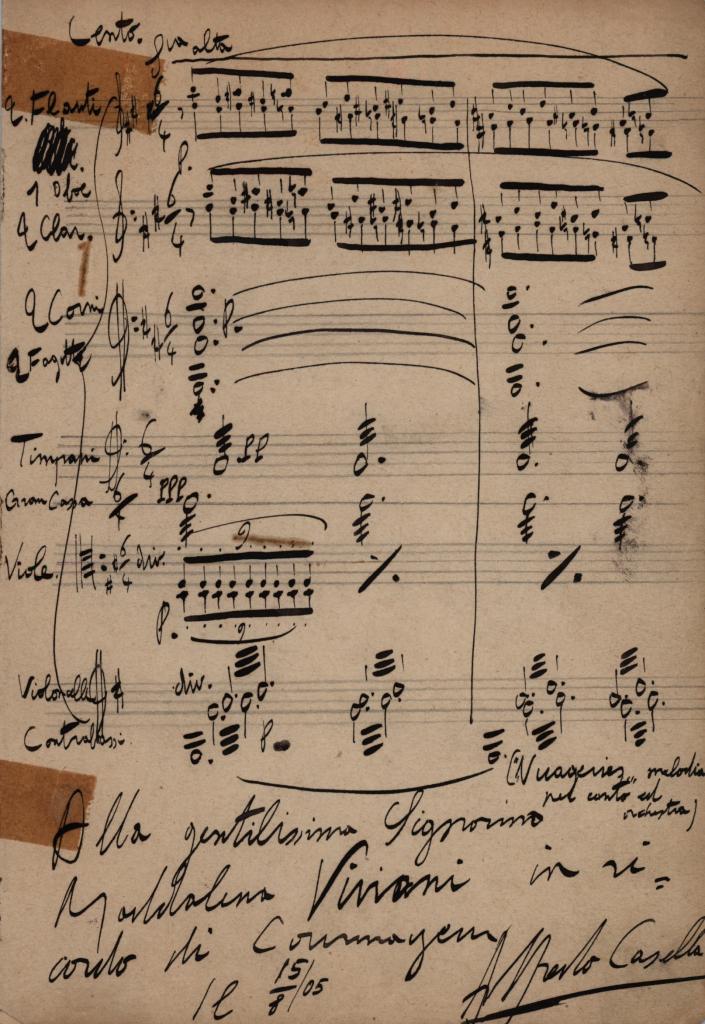 Lento.
8va alta
2. Flauti
6/4
P.
1 Oboe
2 Clar.
6/4
2 Corni
6/4
P.
2 Fagotti
Timpani
6/4
PP
Gran Cassa
6/4
PPP
Viole.
6/4
div.
9
P.
9
Violoncelli
div.
Contrabassi.
P.
("Nuageries" melodia
pel canto ed
orchestra)
Alla gentilissima Signorina
Maddalena Viviani in ri=
cordo di Courmayeur
Il 15/8/05
Alfredo Casella